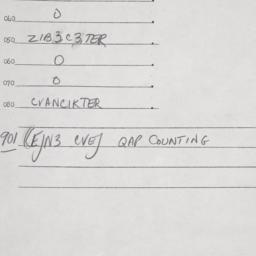 040 0
050 ZIB3C3TER
060 0
070 0
080 CVANCIKTER
901 [E]N3 CVE] QAP COUNTING